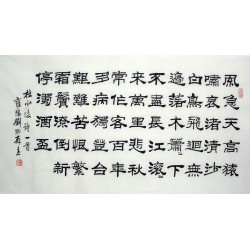 風急天高猿
嘯哀渚清沙
白鳥飛迴無
邊落木蕭々下
不盡長江滾々
來萬里悲秋
常作客百年
多病獨登台
艱難苦恨繁
霜鬢潦倒新
停濁酒杯
杜少陵詩首